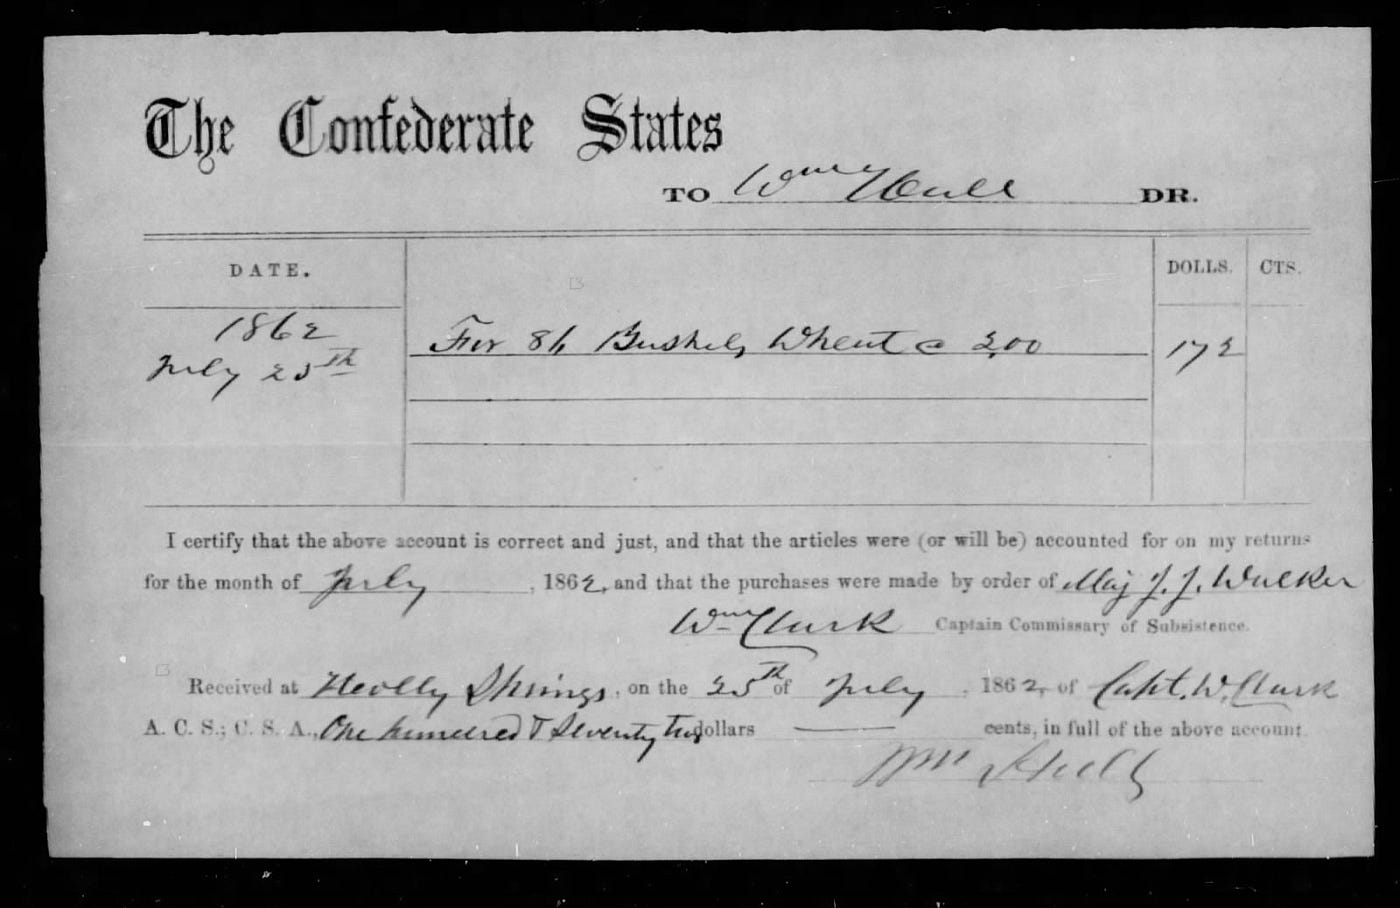 The Confederate States
TO Wm Hull DR.
DATE. DOLLS. CTS.
1862
July 25th For 86 Bushels Wheat @ 2,00 172
I certify that the above account is correct and just, and that the articles were (or will be) accounted for on my returns
for the month of July, 1862, and that the purchases were made by order of Maj J. J. Walker
Wm Clark Captain Commissary of Subsistence.
Received at Holly Springs, on the 25th of July, 1862, of Capt. W. Clark
A. C. S.; C. S. A., One hundred & Seventy two dollars — cents, in full of the above account.
Wm Hull